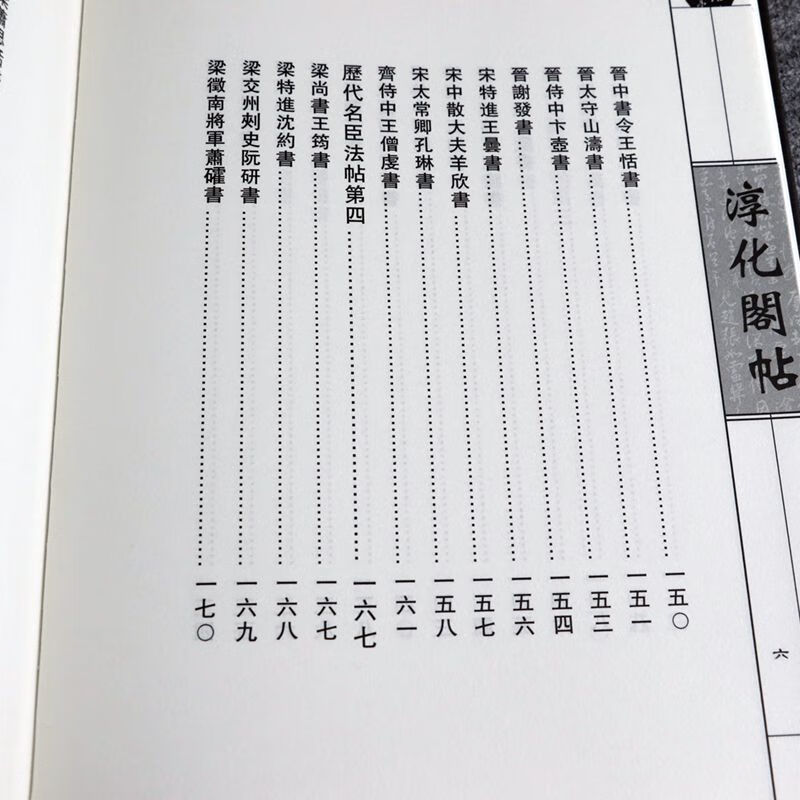 淳化閣帖
六
晉中書令王恬書……一五〇
晉太守山濤書……一五一
晉侍中卞壺書……一五三
晉謝發書……一五四
宋特進王曇書……一五六
宋中散大夫羊欣書……一五七
宋太常卿孔琳書……一五八
齊侍中王僧虔書……一六一
歷代名臣法帖第四……一六七
梁尚書王筠書……一六七
梁特進沈約書……一六八
梁交州刾史阮研書……一六九
梁徵南將軍蕭礭書……一七〇